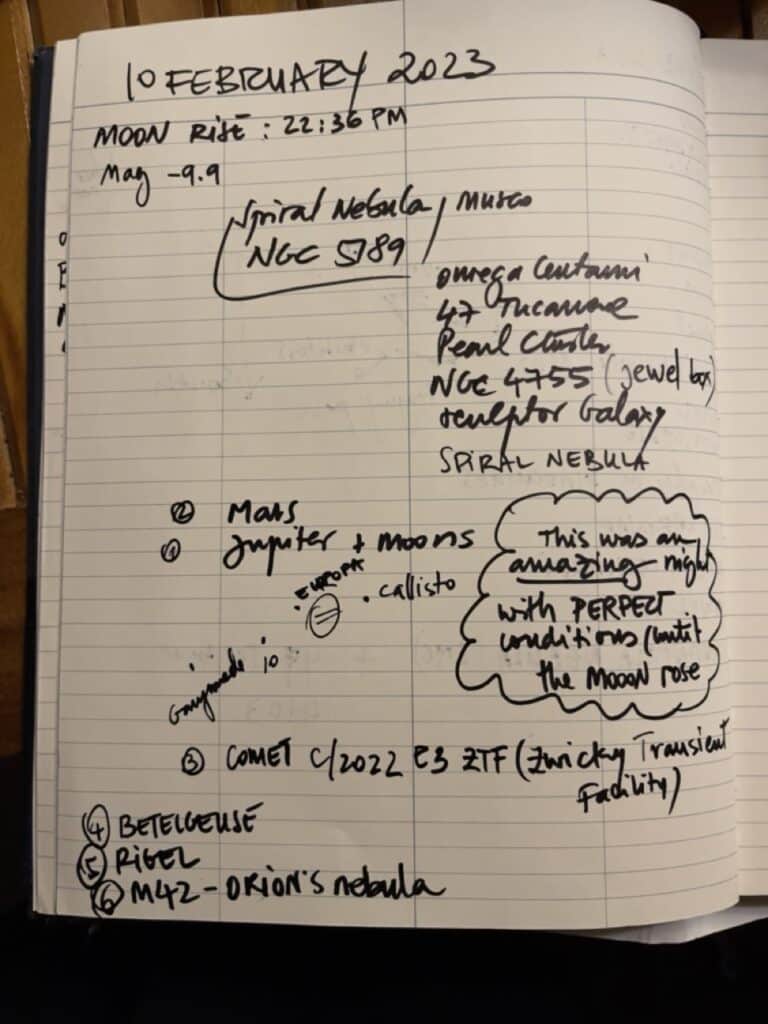 10 FEBRUARY 2023
MOON RISE : 22:36 PM
Mag -9.9
Spiral Nebula / Musca
NGC 5189
omega Centauri
47 Tucanae
Pearl Cluster
NGC 4755 (jewel box)
sculptor Galaxy
SPIRAL NEBULA
② Mars
① Jupiter + moons
EUROPA
callisto
io
Ganymede
This was an
amazing night
with PERFECT
conditions (until
the MOOON rose
③ COMET C/2022 E3 ZTF (Zwicky Transient
Facility)
④ BETELGEUSE
⑤ RIGEL
⑥ M42 - ORION'S nebula